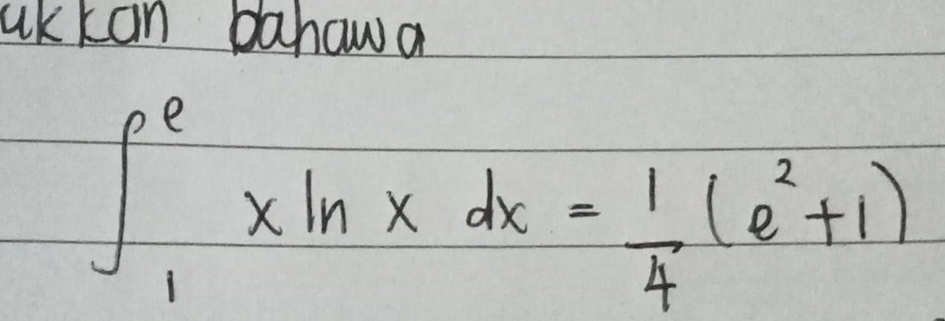 ukkan bahawa
∫₁ᵉ x ln x dx = 1/4 (e² + 1)